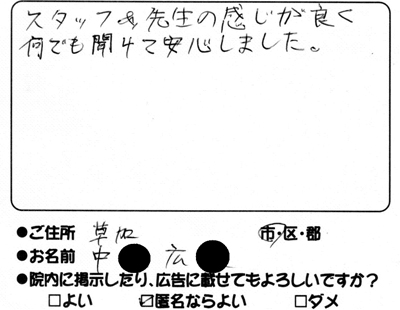 スタッフ&先生の感じが良く
何でも聞けて安心しました。
●ご住所 草加 市・区・郡
●お名前 中●広●
●院内に掲示したり、広告に載せてもよろしいですか?
□よい ☑匿名ならよい □ダメ